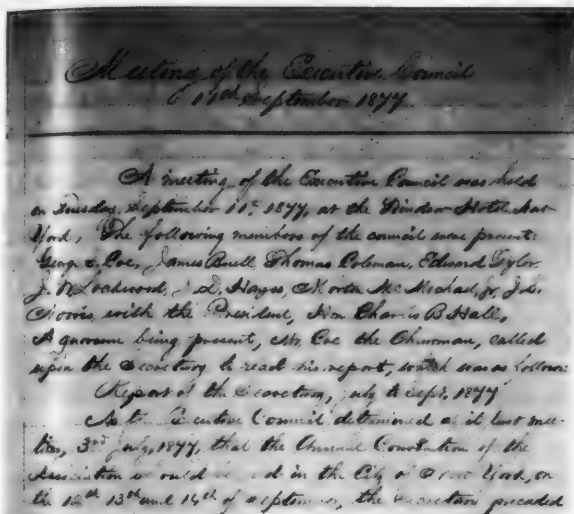 Meeting of the Executive Council
11th September 1877.
A meeting of the Executive Council was held
on Tuesday, September 11th 1877, at the Windsor Hotel New
York, The following members of the council were present:
George S. Coe, James Buell, Thomas Coleman, Edward Tyler,
J. W. Lockwood, J. D. Hayes, Morton McMichael, jr, Jos.
Norris, with the President, Hon Charles B Hall,
A quorum being present, Mr. Coe the Chairman, called
upon the Secretary to read his report, which was as follows:
Report of the Secretary, July to Sept, 1877
As the Executive Council determined at it last mee-
ting, 3rd July, 1877, that the Annual Convention of the
Association should be held in the City of New York, on
the 12th 13th and 14th of September, the Secretary proceeded